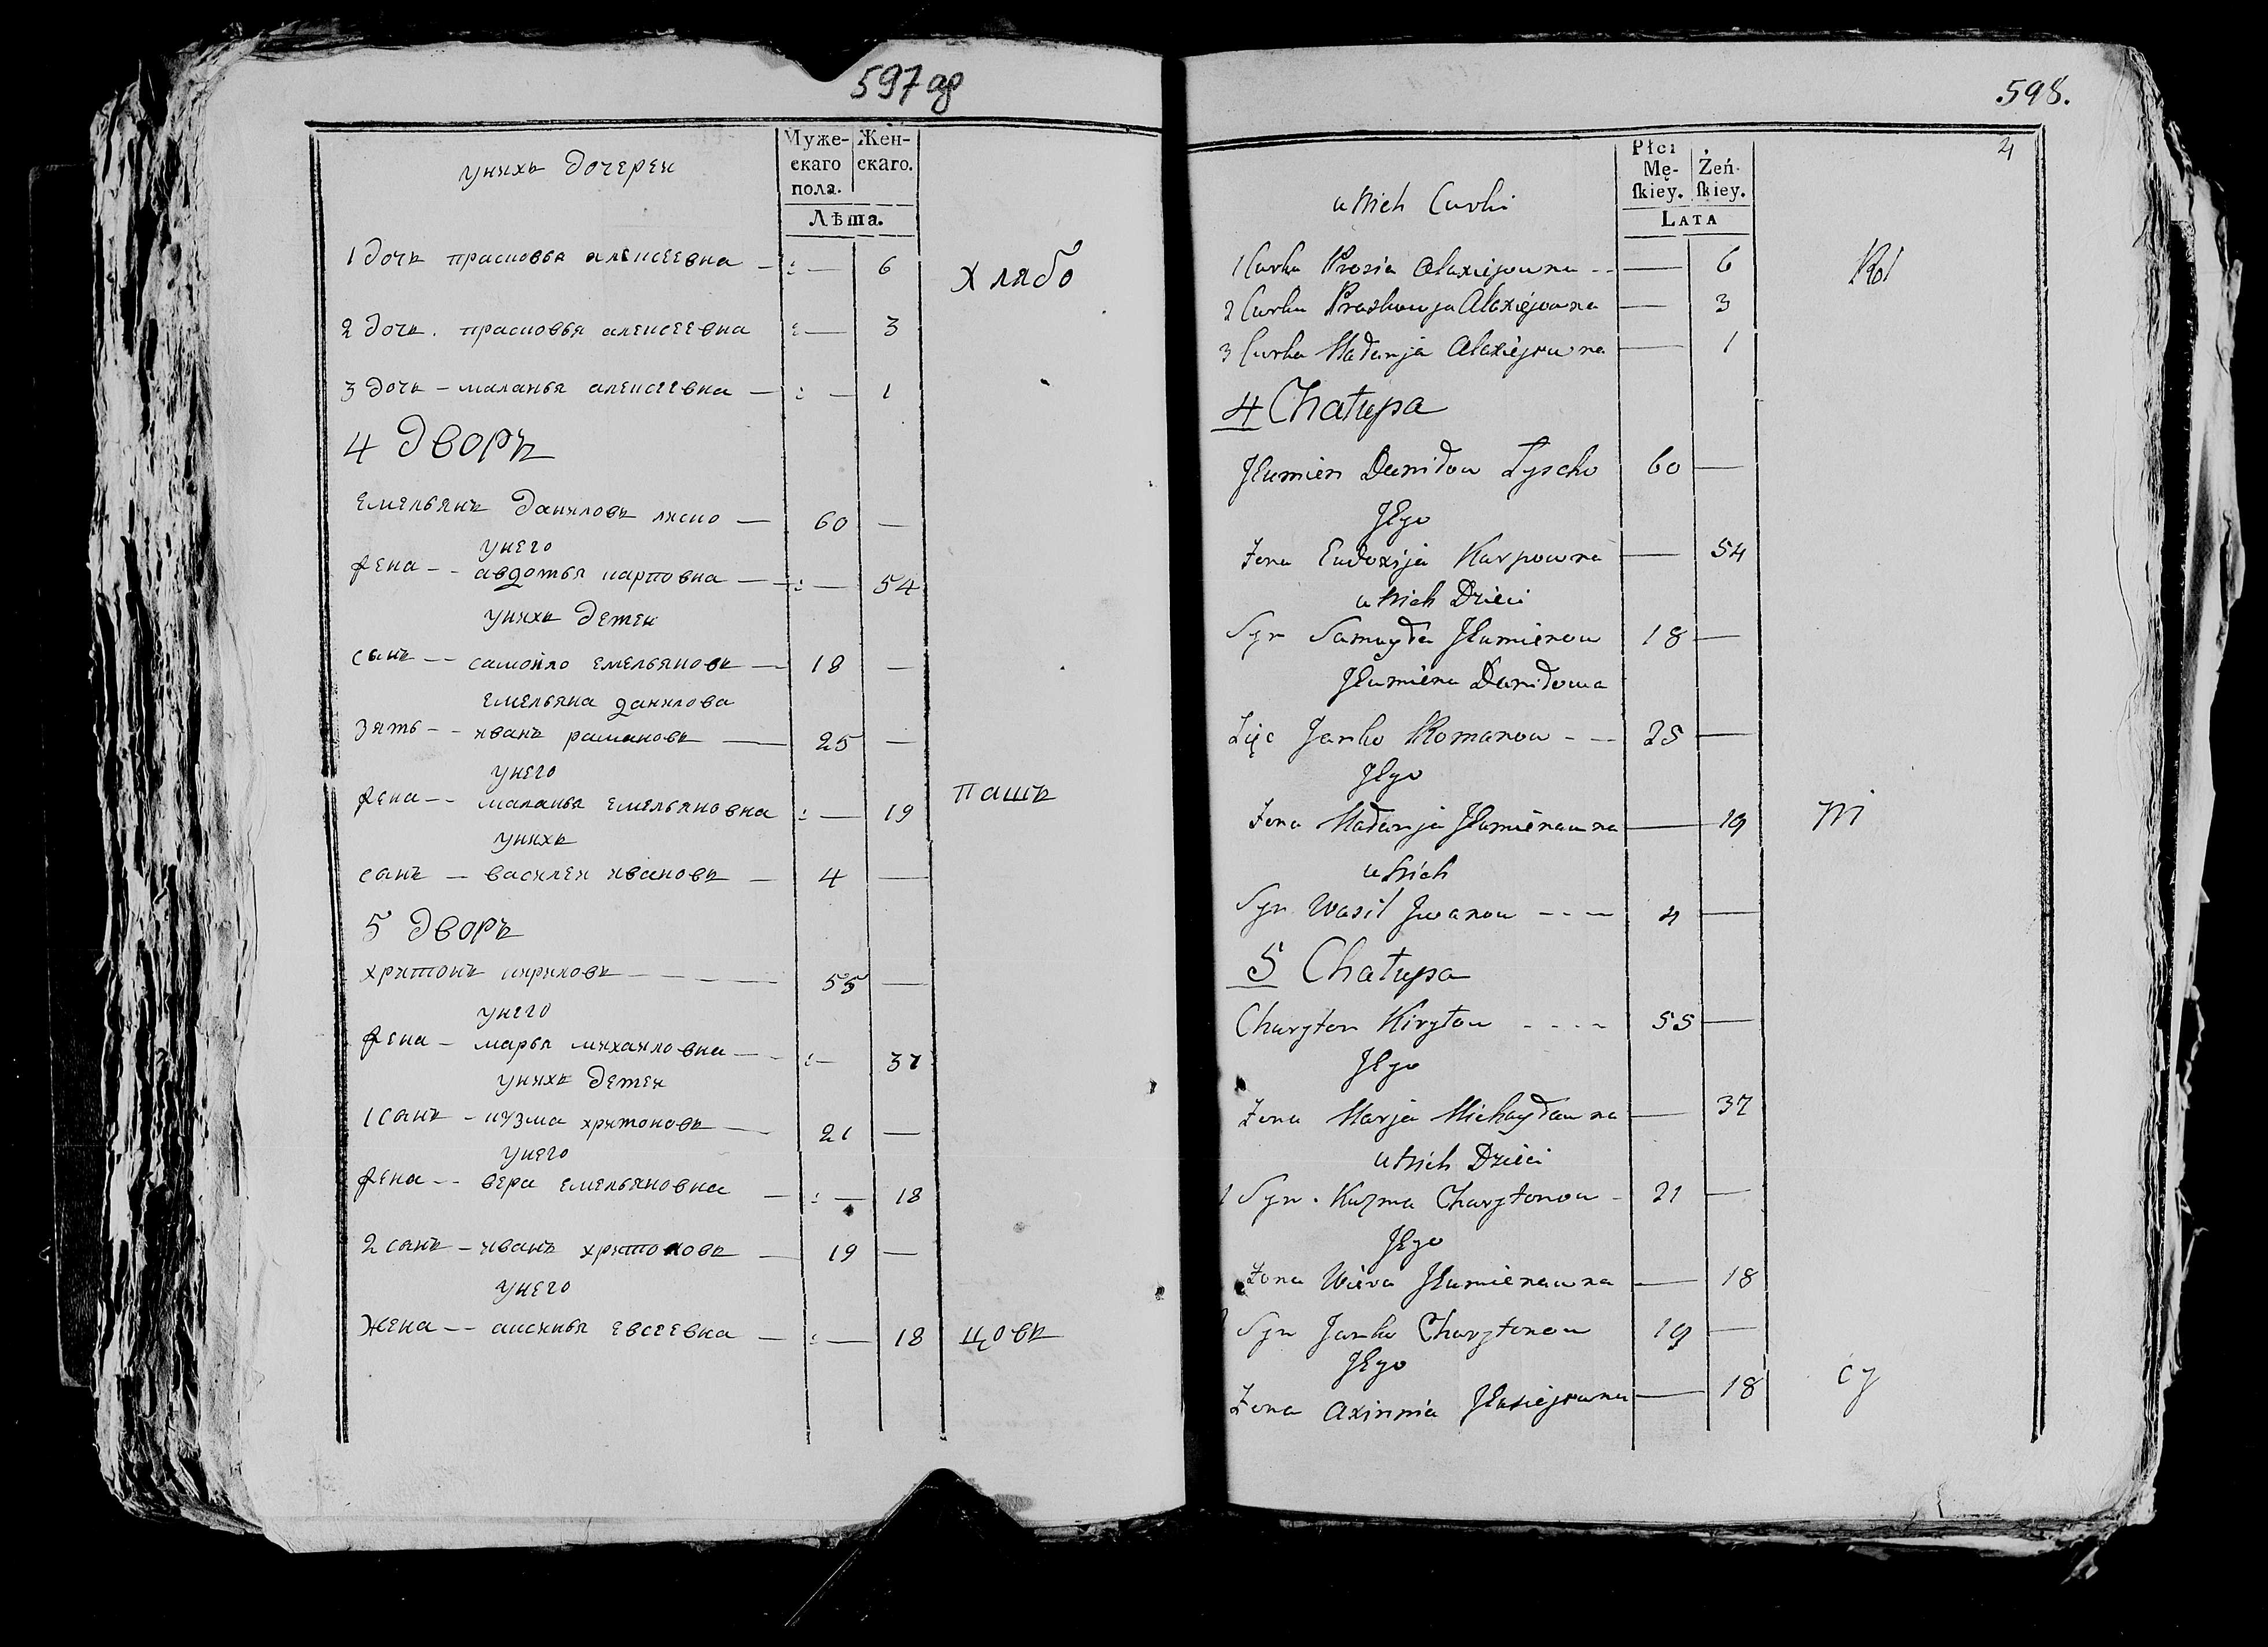 597 об
Муже-
скаго
пола.
Жен-
скаго.
Лѣта.
унихъ дочереи
1 дочъ прасковья алексеевна — : — 6
хлябо
2 дочъ. прасковья алексеевна : — 3
3 дочъ — маланья алексеевна — : — 1
4 дворъ
емельянъ даниловъ лиско — 60 —
унего
жена — авдотья карповна — : — 54
унихъ детеи
сынъ — самоило емельяновъ — 18 —
емельяна данилова
зять — иванъ рамановъ — 25 —
унего
жена — маланья емельяновна : — 19
пашъ
унихъ
сынъ — василеи ивановъ — 4 —
5 дворъ
хритонъ кириловъ — 55 —
унего
жена — марья михаиловна — : — 37
унихъ детеи
1 сынъ — кузма хритоновъ — 21 —
унего
жена — вера емельяновна — : — 18
2 сынъ — иванъ хритоновъ — 19 —
унего
жена — аксинья евсеевна — : — 18
цовъ
598.
4
Płci
Mę-
ſkiey.
Żeń-
ſkiey.
LATA
u Nich Curki
1 Curka Prosia Alaxiejowna — 6
Rol
2 Curka Praskowja Alaxiejowna — 3
3 Curka Małanja Alaxiejowna — 1
4 Chałupa
Jlamien Daniłow Lysko 60 —
JEgo
Żona Eudoxija Karpowna — 54
u Nich Dzieci
Syn Samuyła Jlamienow 18 —
Jlamiena Daniłowa
Zięc Janko Romanow — 25 —
JEgo
Żona Małanja Jlamienauna — 19
ni
u Nich
Syn Wasil Jwanow — 4 —
5 Chałupa
Charyton Kiryłow — 55 —
JEgo
Żona Marja Michayłauna — 37
u Nich Dzieci
1 Syn. Kuzma Charytonow 21 —
JEgo
Żona Wiera Jlamienauna — 18
Syn Janko Charytonow 19 —
JEgo
Żona Axinnia Jlasiejowna — 18
cy